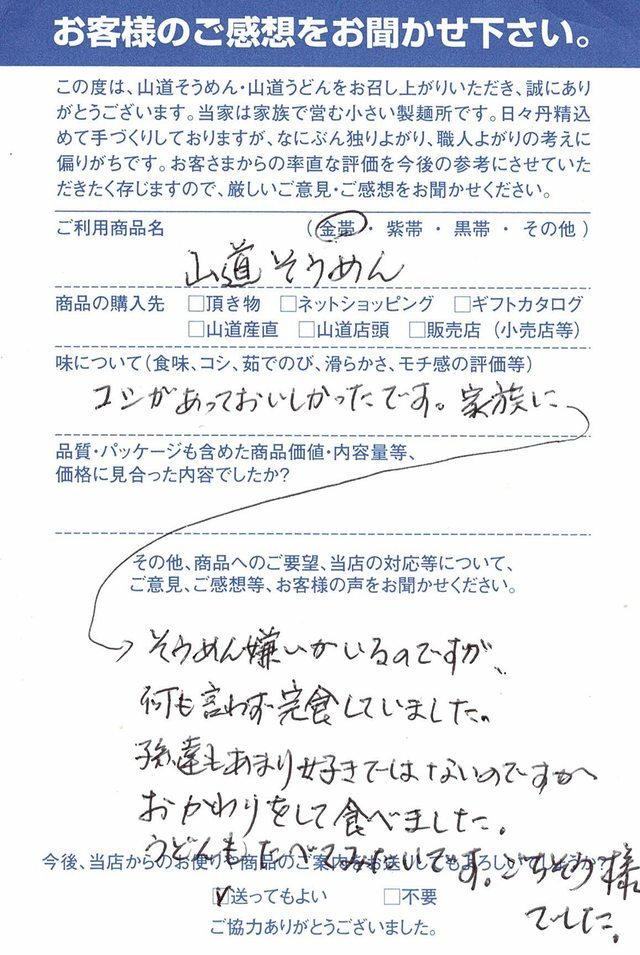 お客様のご感想をお聞かせ下さい。
この度は、山道そうめん・山道うどんをお召し上がりいただき、誠にあり
がとうございます。当家は家族で営む小さい製麺所です。日々丹精込
めて手づくりしておりますが、なにぶん独りよがり、職人よがりの考えに
偏りがちです。お客さまからの率直な評価を今後の参考にさせていた
だきたく存じますので、厳しいご意見・ご感想をお聞かせください。
ご利用商品名 （金帯・紫帯・黒帯・その他）
山道そうめん
商品の購入先 □頂き物 □ネットショッピング □ギフトカタログ
□山道産直 □山道店頭 □販売店（小売店等）
味について（食味、コシ、茹でのび、滑らかさ、モチ感の評価等）
コシがあっておいしかったです。家族に
品質・パッケージも含めた商品価値・内容量等、
価格に見合った内容でしたか?
その他、商品へのご要望、当店の対応等について、
ご意見、ご感想等、お客様の声をお聞かせください。
そうめん嫌いがいるのですが、
何も言わず完食していました。
子供達もあまり好きではないのですが
おかわりをして食べました。
うどんもたべてみたいです。ごちそう様
でした。
今後、当店からのお便りや商品のご案内をお送りしてもよろしいでしょうか?
☑送ってもよい □不要
ご協力ありがとうございました。